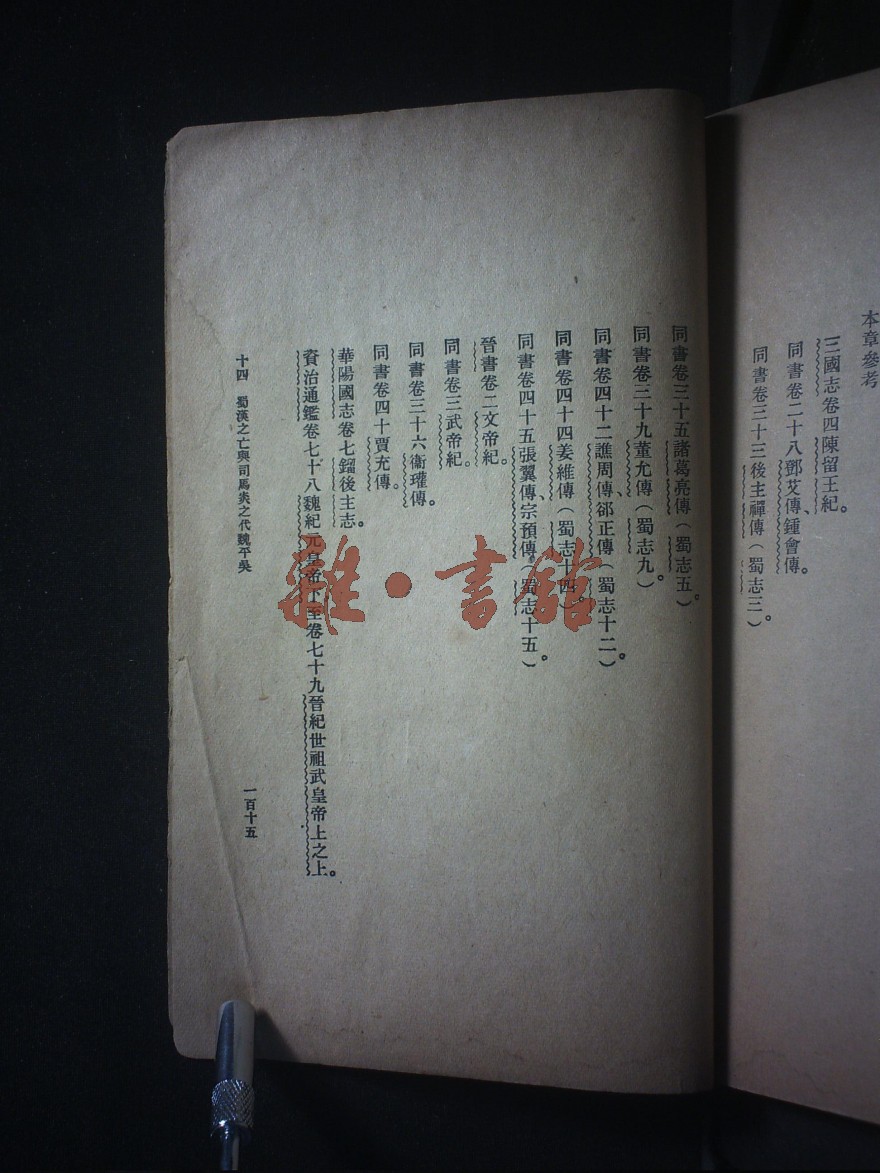 本章參考
三國志卷四陳留王紀。
同書卷二十八鄧艾傳、鍾會傳。
同書卷三十三後主禪傳（蜀志三）。
同書卷三十五諸葛亮傳（蜀志五）。
同書卷三十九董允傳（蜀志九）。
同書卷四十二譙周傳、郤正傳（蜀志十二）。
同書卷四十四姜維傳（蜀志十四）。
同書卷四十五張翼傳、宗預傳（蜀志十五）。
晉書卷二文帝紀。
同書卷三武帝紀。
同書卷三十六衞瓘傳。
同書卷四十賈充傳。
華陽國志卷七劉後主志。
資治通鑑卷七十八魏紀元皇帝下至卷七十九晉紀世祖武皇帝上之上。
十四　蜀漢之亡與司馬炎之代魏平吳
一百十五
雜·書館